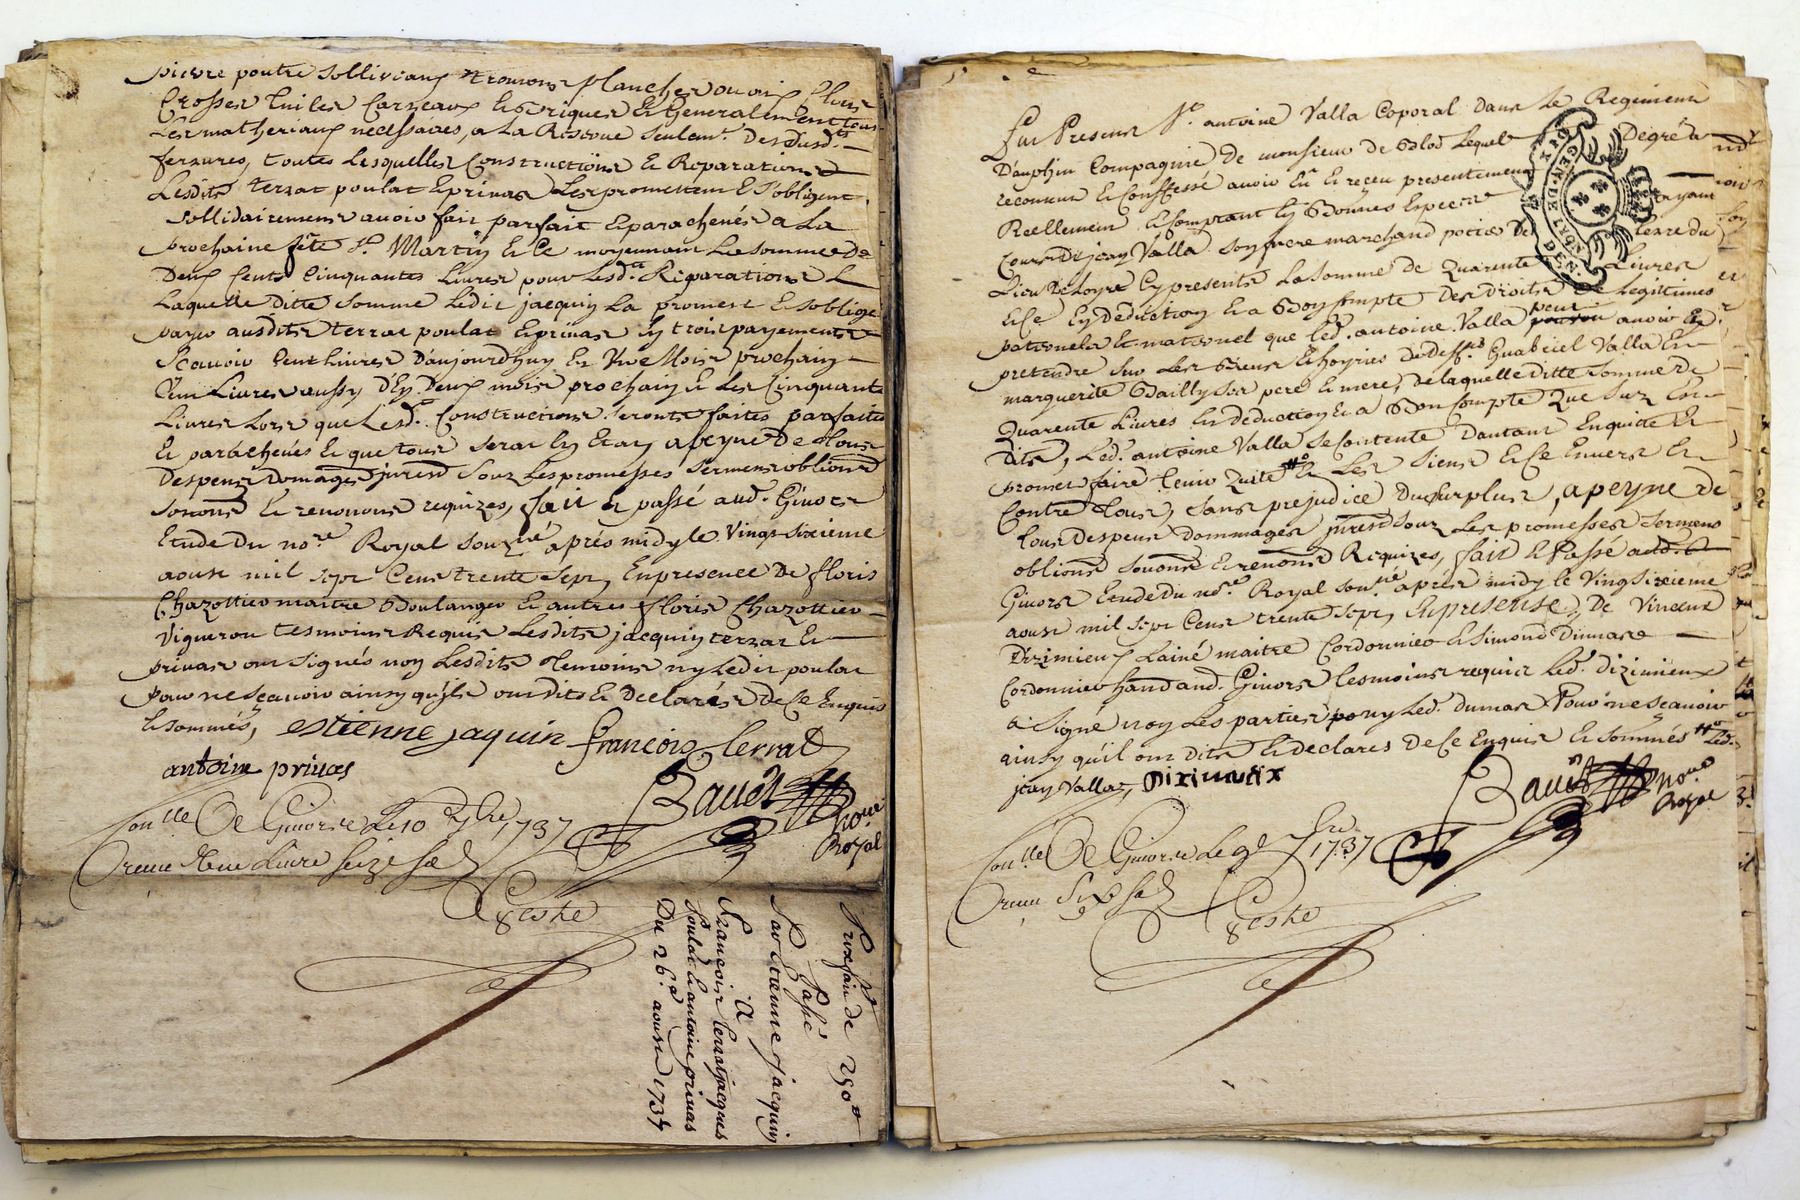 pierre poutre solliveaux trousons planches ou aix clous
Crosses tuiles Carreaux Briques et Generalement tous
Les matheriaux necessaires, a La Reserve seulemt. Desdusdtes
ferrures, toutes Lesquelles Constructions et Reparations
Lesdits terrat poulat et privas Les promettent et s'obligent
sollidairement avoir fait parfait et parachevés a La
prochaine fête St. Martin et Ce moyennant La somme De
Deux Cents Cinquantes Livres pour Lesdtes Réparations
Laquelle Ditte somme Ledit jacquin La promest et s'oblige
payer ausdits terrat poulat et privas En trois payements
Scavoir Cent Livres D'aujourd'huy En Un Mois prochain
Cent Livres aussy d'Ey Deux mois prochain et Les Cinquante
Livres Lors que Lesdtes Constructions seronts faites parfaites
Et parachevés et que tout serat En Etat apeyne De tous
Despens Domages jurend sous Les promesses serments oblions
soumons et renonons requizes, fait et passé aud. Givors
Etude Du nore Royal souzné après midy le Vingt sixieme
aoust mil sept Cent trente sept, En presence De floris
Chazottier maitre Boulanger et autres floris Chazottier
Vigneron tesmoins Requis Lesdits jacquin terrat Et
privas ont signés non Lesdits temoins ny Ledit poulat
Pour ne sçavoir ainsy qu'ils ont dits et Declarés De Ce Enquis
Et sommés,
estienne jaquin françois terrat
antoine privas
Bauet nore Royal
Conlle A Givors Le 10 7bre 1737
Receu Une Livre seize s d
Geste
Prixfait de 250 tt
Passé
Par etienne jacquin
à
françois terrat jacques
Poulat et antoine privas
Du 26e aoust 1737
Fut Present Sr. antoine Valla Coporal dans Le Regiment
Dauphin Compagnie de monsieur de Blod Lequel Degré à
reconnu et Confessé avoir Eu et receu presentement
Reellement et Comptant En Bonnes Especes ayant
Cours De jean Valla son frere marchand potier De terre du
Lieu De Loyre Cy present La somme de Quarente Livres
et Ce En Deduction et a Bon Compte Des Droits Legitimes
paternels et maternel que led. antoine Valla peut avoir et
pretendre sur Les Biens et hoyries de Deffts Guabriel Valla Et
marguerite Bailly ses pere et mere, de laquelle ditte somme De
Quarente Livres En deduction et a Bon Compte Que sus Est
Dits, Led. antoine Valla se Contente D'autant En quitte Et
promet faire tenir Quite et Les siens et Ce Envers Et
Contre tous, sans prejudice Du surplus, apeyne de
tous Despens Dommages jurend sous Les promesses serments
oblions soumons et renons Requizes, fait et Passé aud.
Givors Etude du nore Royal souzné après midy le Vingt sixieme
aoust mil sept Cent trente sept, En presence, De Vincent
Dizimieux L'ainé maitre Cordonnier et Simond Dumas
Cordonnier habt aud. Givors tesmoins requis Led. dizimieux
a signé non Les parties ny Led. dumas Pour ne sçavoir
ainsy qu'il ont dits et declares De Ce Enquis et sommés Led.
jean Valla, Dizimieux
Bauet nore Royal
Conlle A Givors Le 9e 7bre 1737
Receu Six s d
Geste
GEN. DE LYON